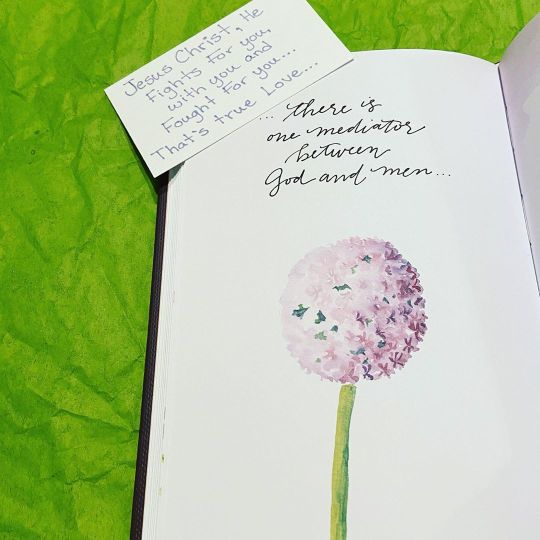 Jesus Christ, He
Fights for you,
with you and
Fought For you...
That's true Love...
... there is
one mediator
between
God and men...